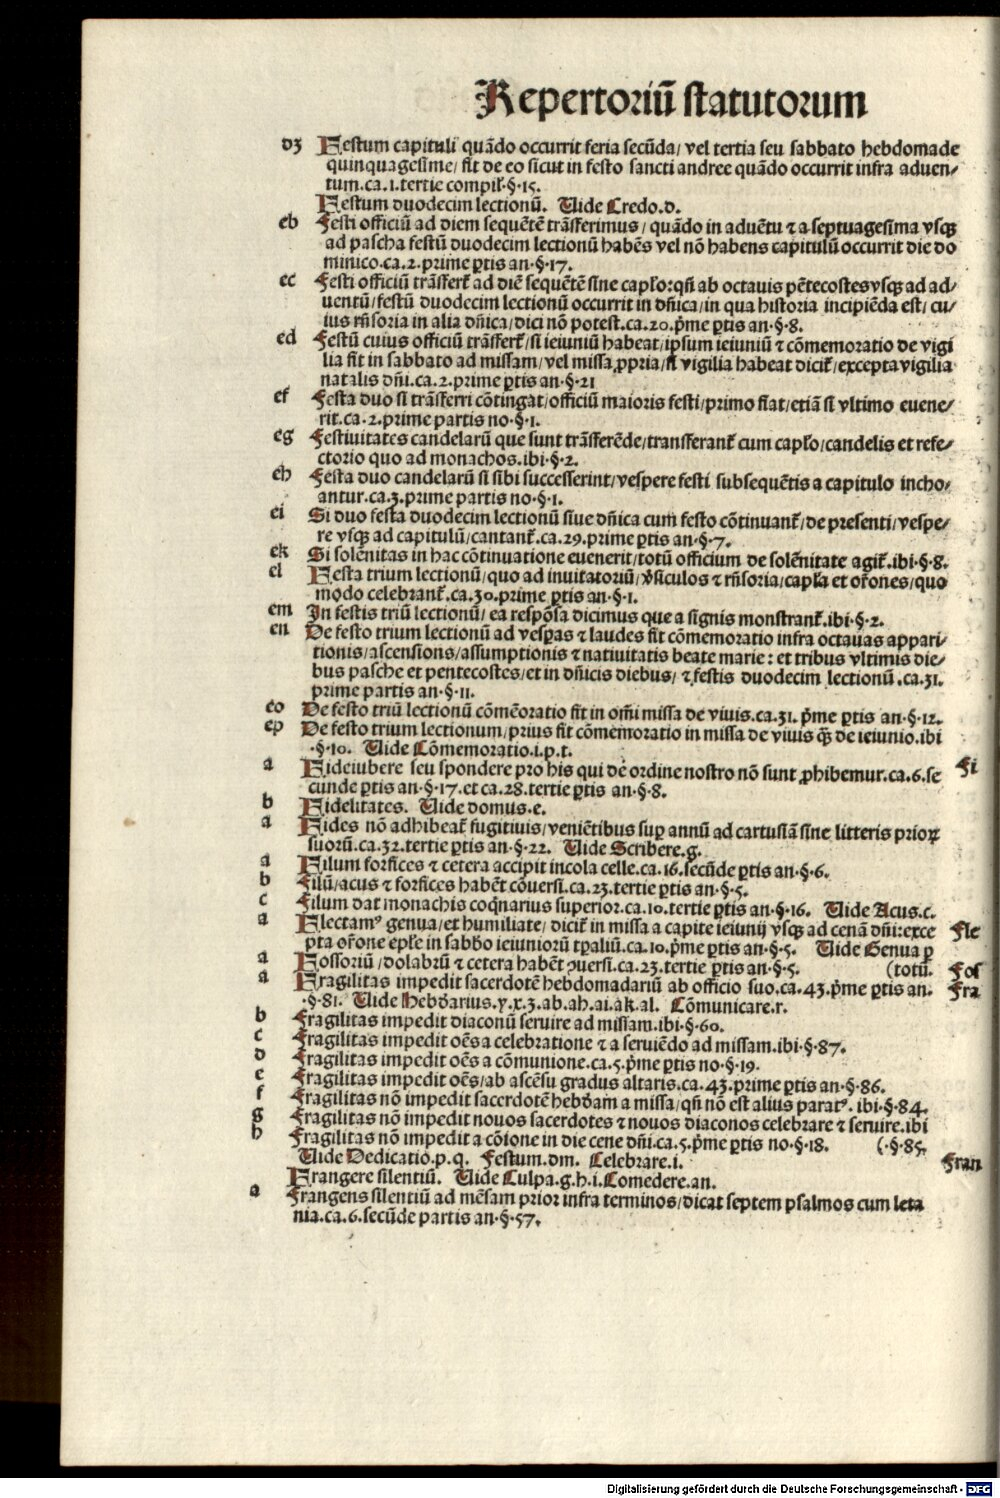 Repertoriū statutorum
dz Festum capituli quādo occurrit feria secūda/ vel tertia seu sabbato hebdomade
quinquagesime/ fit de eo sicut in festo sancti andree quādo occurrit infra aduen/
tum.ca.1.tertie compil̄.§.15.
Festum duodecim lectionū. Uide Credo.d.
eb Festi officiū ad diem sequētē trāsferimus/ quādo in aduētu ⁊ a septuagesima vsqꝫ
ad pascha festū duodecim lectionū habēs vel nō habens capitulū occurrit die do
minico.ca.2.prime ꝑtis an.§.17.
ec Festi officiū trāsfert̄ ad diē sequētē sine capl̄o:qn̄ ab octauis pētecostes vsqꝫ ad ad/
uentū/festū duodecim lectionū occurrit in dn̄ica/in qua historia incipiēda est/ cu/
ius rn̄soria in alia dn̄ica/dici nō potest.ca.20.p̄me ꝑtis an.§.8.
ed Festū cuius officiū trāsfert̄/si ieiuniū habeat/ipsum ieiuniū ⁊ cōmemoratio de vigi
lia fit in sabbato ad missam/vel missa ꝓpria/si vigilia habeat dicit̄/excepta vigilia
natalis dn̄i.ca.2.prime ꝑtis an.§.21
ef Festa duo si trāsferri cōtingat/officiū maioris festi/primo fiat/etiā si vltimo euene/
rit.ca.2.prime partis no.§.1.
eg Festiuitates candelarū que sunt trāsferēde/transferant̄ cum capl̄o/candelis et refe/
ctorio quo ad monachos.ibi.§.2.
eh Festa duo candelarū si sibi successerint/vespere festi subsequētis a capitulo incho/
antur.ca.3.prime partis no.§.1.
ei Si duo festa duodecim lectionū siue dn̄ica cum festo cōtinuant̄/de presenti/vespe/
re vsqꝫ ad capitulū/cantant̄.ca.29.prime ꝑtis an.§.7.
ek Si solēnitas in hac cōtinuatione euenerit/totū officium de solēnitate agit̄.ibi.§.8.
el Festa trium lectionū/quo ad inuitatoriū/v̄siculos ⁊ rn̄soria/capl̄a et or̄ones/quo
modo celebrant̄.ca.30.prime ꝑtis an.§.1.
em In festis triū lectionū/ ea respōsa dicimus que a signis monstrant̄.ibi.§.2.
en De festo trium lectionū ad vesꝑas ⁊ laudes fit cōmemoratio infra octauas appari/
tionis/ascensions/assumptionis ⁊ natiuitatis beate marie: et tribus vltimis die/
bus pasche et pentecostes/et in dn̄icis diebus/ ⁊ festis duodecim lectionū.ca.31.
prime partis an.§.11.
eo De festo triū lectionū cōmēoratio fit in om̄i missa de viuis.ca.31. p̄me ꝑtis an.§.12.
ep De festo trium lectionum/prius fit cōmemoratio in missa de viuis qꝫ̄ de ieiunio.ibi
.§.10. Uide Cōmemoratio.i.p.t.
a Fideiubere seu spondere pro his qui de ordine nostro nō sunt ꝓhibemur.ca.6.se Fi
cunde ꝑtis an.§.17.et ca.28.tertie ꝑtis an.§.8.
b Fidelitates. Uide domus.e.
a Fides nō adhibeat̄ fugitiuis/veniētibus suꝑ annū ad cartusiā sine litteris prioꝝ
suorū.ca.32.tertie ꝑtis an.§.22. Uide Scribere.g.
a Filum forfices ⁊ cetera accipit incola celle.ca.16.secūde ꝑtis an.§.6.
b Filū/acus ⁊ forfices habēt cōuersi.ca.23.tertie ꝑtis an.§.5.
c Filum dat monachis coq̄narius superior.ca.10.tertie ꝑtis an.§.16. Uide Acus.c.
a Flectamꝰ genua/et humiliate/ dicit̄ in missa a capite ieiunij vsqꝫ ad cenā dn̄i:exce Fle
pta or̄one epl̄e in sabb̄o ieiuniorū tꝑaliū.ca.10.p̄me ꝑtis an.§.5. Uide Genua ꝑ
a Fossoriū/dolabrū ⁊ cetera habēt ꝯuersi.ca.23.tertie ꝑtis an.§.5. (totū. Fos
a Fragilitas impedit sacerdotē hebdomadariū ab officio suo.ca.43.p̄me ꝑtis an. Fra
.§.81. Uide Hebd̄arius.y.x.3.ab.ah.ai.ak.al. Cōmunicare.r.
b Fragilitas impedit diaconū seruire ad missam.ibi.§.60.
c Fragilitas impedit oēs a celebratione ⁊ a seruiēdo ad missam.ibi.§.87.
d Fragilitas impedit oēs a cōmunione.ca.5.p̄me ꝑtis no.§.19.
e Fragilitas impedit oēs/ab ascēsu gradus altaris.ca.43.prime ꝑtis an.§.86.
f Fragilitas nō impedit sacerdotē hebd̄am a missa/qn̄ nō est alius paratꝰ. ibi.§.84.
g Fragilitas nō impedit nouos sacerdotes ⁊ nouos diaconos celebrare ⁊ seruire.ibi
h Fragilitas nō impedit a cōione in die cene dn̄i.ca.5.p̄me ꝑtis no.§.18. (.§.85.
Uide Dedicatio.p.q. Festum.dm. Celebrare.i. Fran
Frangere silentiū. Uide Culpa.g.h.i.Comedere.an.
a Frangens silentiū ad mēsam prior infra terminos/dicat septem psalmos cum leta
nia.ca.6.secūde partis an.§.57.
Digitalisierung gefördert durch die Deutsche Forschungsgemeinschaft - DFG